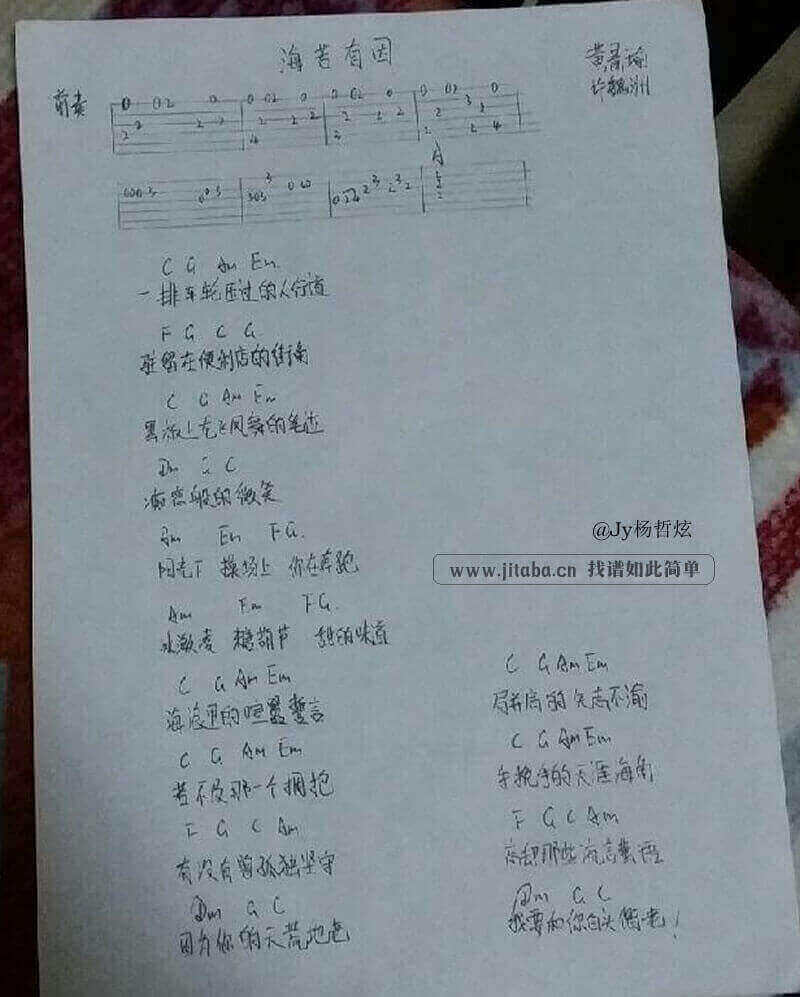 海若有因
黄景瑜
许魏洲
前奏
C G Am Em
一排车轮压过的人行道
F G C G
驻留在便利店的街角
C G Am Em
黑板上龙飞凤舞的笔迹
Dm G C
般的微笑
Am Em F G.
阳光下 操场上 你在奔跑
Am Em F G.
冰激凌 糖葫芦 甜的味道
C G Am Em
海浪里的喧嚣誓言
C G Am Em
若不及那一个拥抱
F G C Am
有没有曾孤独坚守
Dm G C
因为你的天荒地老
@Jy杨哲炫
www.jitaba.cn 找谱如此简单
C G Am Em
肩并肩的矢志不渝
C G Am Em
手挽手的天涯海角
F G C Am
忘却那些流言蜚语
Dm G C
我要和你白头偕老!